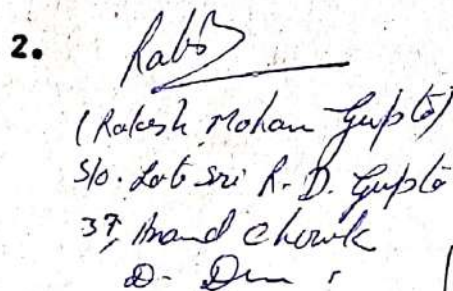 2.
(Rakesh Mohan Gupta)
S/o. Late Sri R. D. Gupta
37, Anand Chowk
D. Dun